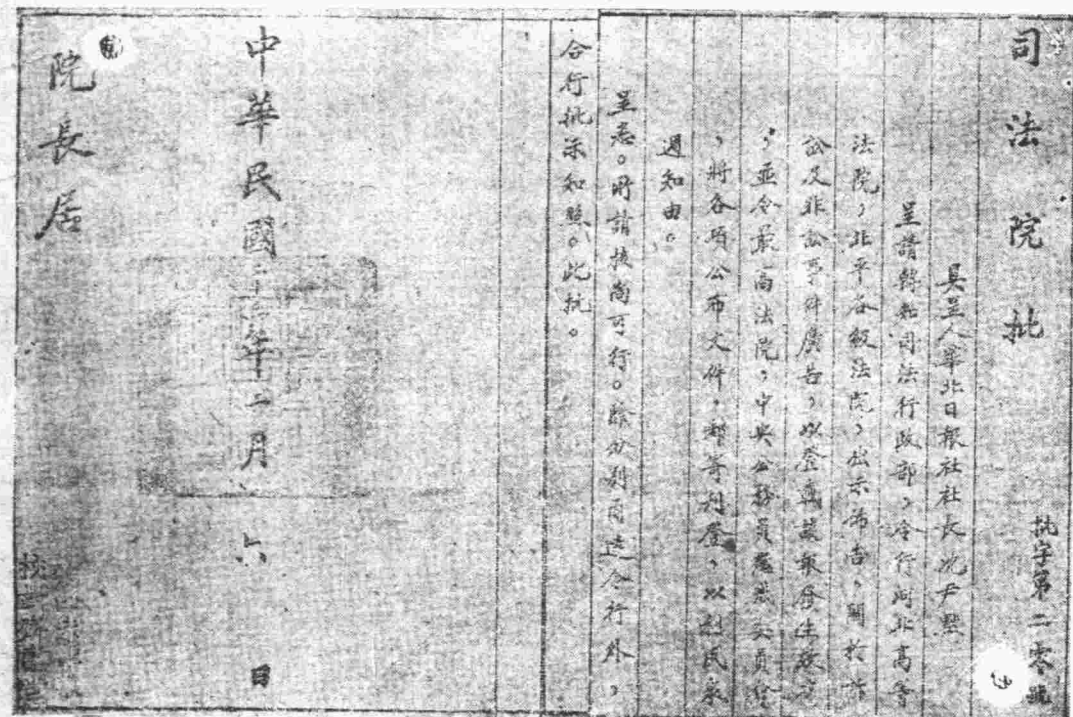 司法院批
批字第二零號
具呈人華北日報社社長沈尹默
呈請轉飭司法行政部，令行河北高等
法院，北平各級法院，出示佈告，關於訴
訟及非訟事件廣告，以登載該報發生效力
，並令最高法院，中央公務員懲戒委員會
，將各項公布文件，郵寄刊登，以利民衆
週知由。
呈悉。所請核尚可行。除分別函達令行外，
合行批示知照。此批。
中華民國二十二年二月六日
院長居